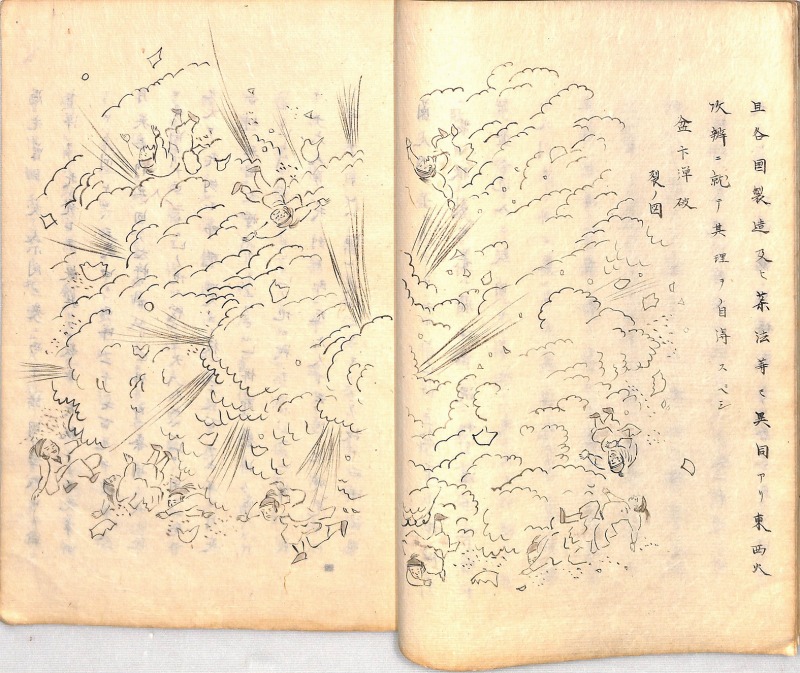 且各国製造及ヒ薬法等モ異同アリ東西火
攻辨ニ就テ其理ヲ自得スベシ
盆卞弾破
裂ノ図